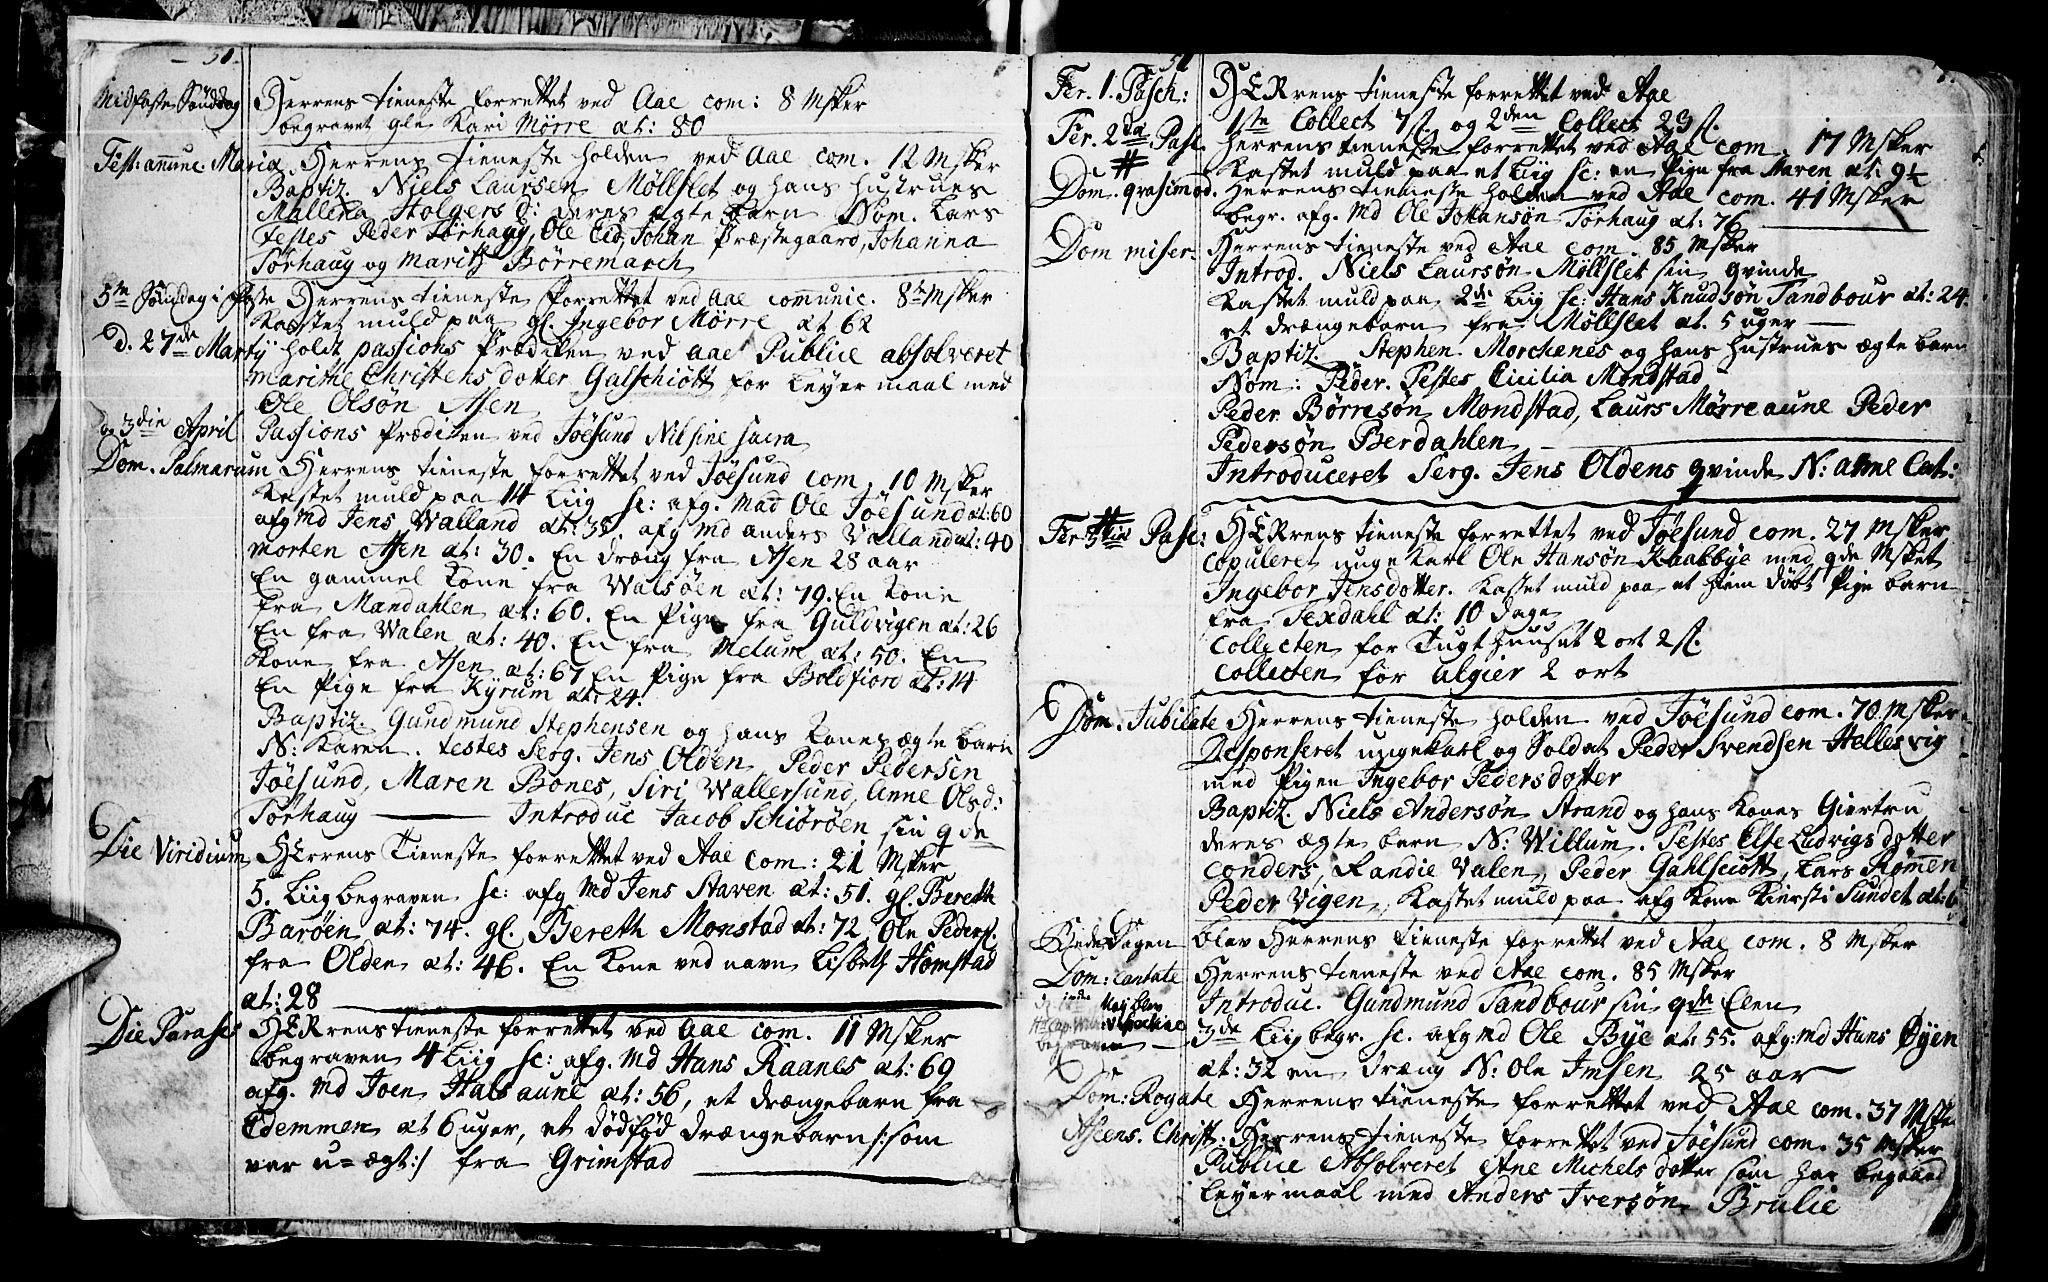 51.
Midfaste Søndag Herrens tieneste forrettet ved Aae com: 8 Msker
begravet gle Kari Mørre æt: 80
Fest: anunc. Mariæ Herrens tieneste holden ved Aae com. 12 Msker
Baptiz. Niels Laursen Møllslet og hans hustrues
Mallena Holgers d: deres ægte barn Nom. Lars
testes Peder Tørhaug, Ole Eid, Johan Præstegaard, Johanna
Tørhaug og Marith Børremarch
5te Søndag i faste Herrens tieneste forrettet ved Aae communic. 8te Msker
Kastet muld paa gl. Ingebor Mørre æt 62
D. 27de Martij holdt passions Prædiken ved Aae Publice absolveret
Marithe Christens dotter Galschiøtt for Leyermaal med
Ole Olsøn Asen
D. 3die April Passions Prædiken ved Jøesund Nil sine sacra
Dom. Palmarum Herrens tieneste forrettet ved Jøesund com. 10 Msker
Kastet muld paa 14 Liig sc: afg. Mad Ole Jøesund æt: 60
afg Md Jens Walland æt: 35 afg Md anders Valland æt: 40
Morten Asen æt: 30. En dræng fra Asen 28 aar
En gammel Kone fra Walsøen æt: 79. En Kone
fra Mandahlen æt: 60. En Pige fra Guldvigen æt: 26
En fra Walen æt: 40. En fra Melum æt: 50. En
Kone fra Asen æt: 67 En Pige fra Boldfiord æt: 14
En Pige fra Kyrum æt: 24.
Baptiz. Gundmund Stephensen og hans Kones ægte barn
N: Karen. testes Serg. Jens Olden Peder Pedersen
Jøesund, Maren Bones, Siri Wallersund, Anne Olsd:
Tørhaug — Introduc Jacob Schiørøen sin qde
Die Viridium HErrens Tieneste forrettet ved Aae com: 21 Msker
5. Liig begraven sc: afg Md Jens Staven æt: 51. gl. Bereth
Barøen æt: 74. gl. Bereth Monstad æt: 72 Ole Peders.
fra Olden æt: 46. En Kone ved navn Lisbeth Homstad
æt: 28
Die Parasc HERrens tieneste forrettet ved Aae com. 11 Msker
begraven 4 Liig sc: afg. Md Hans Raanes æt: 69
afg. Md Joen Halsaune æt: 56, et drængebarn fra
Edemmen æt 6 uger, et dødfød drængebarn /: som
var u=ægt :/ fra Grimstad
51
Fer. 1. Pasch: HERrens tieneste forrettet ved Aae
1ste Collect 7 s. og 2den Collect 23 s.
Fer. 2da Pasc. Herrens tieneste forrettet ved Aae com. 17 Msker
# Kastet muld paa et Liig sc: en Pige fra Maren æt: 9½
Dom. qvasimod. Herrens tieneste holden ved Aae com. 41 Msker
begr. afg. Md Ole Johansøn Tørhaug æt: 76
Dom miser. Herrens tieneste ved Aae com. 85 Msker
Introd. Niels Laursøn Møllslet sin qvinde
Kastet muld paa 2de Liig sc: Hans Knudsøn Tandbour æt: 24.
et drængebarn fra Møllslet æt. 5 uger
Baptiz. Stephen Morchenes og hans hustrues ægte barn
Nom: Peder. Testes Cicilia Mondstad
Peder Børresøn Mondstad, Laurs Mørreaune Peder
Pedersøn Berdahlen
Introduceret Serg. Jens Oldens qvinde N: Anne Cat:
#
Fer 3tia Pasc: HERrens tieneste forrettet ved Jøesund com. 27 Msker
Copuleret unge Karl Ole Hansøn Kraabbye med qde Msket
Ingebor Jensdotter. Kastet muld paa et hiem døbt Pige barn
fra Texdahl æt: 10 dage
Collecten for Tugthuuset 2 ort 2 s.
Collecten for Algier 2 ort
Dom. Jubilate Herrens tieneste holden ved Jøesund com. 70 Msker
Desponseret unge Karl og Soldat Peder Svendsen Hellesvig
med Pigen Ingebor Pedersdotter
Baptiz. Niels Andersøn Strand og hans Kones Giertru
deres ægte barn N: Willum. Testes Else Ludvigsdotter
Conders, Randie Valen, Peder Gahlsciøtt, Lars Rømen
Peder Vigen, Kastet muld paa afg Kone Kiersti Sundet æt: 6
Bededagen blev Herrens tieneste forrettet ved Aae com. 8 Msker
Dom: Cantate Herrens tieneste ved Aae com. 85 Msker
Introduc. Gundmund Tandbour sin qde Elen
begraven 3de Liig begr. sc. afg Md Ole Bye æt: 55. afg: Md Hans Øyen
æt: 32 en dræng N: Ole Imsen 25 aar
Dom: Rogate Herrens tieneste forrettet ved Aae com. 37 Msker
Ascens. Christ: Herrens tieneste forrettet ved Jøesund com. 35 Msker
Publice Absolveret Ane Michels dotter som har begaaed
Leyermaal med Anders Iversøn Brulie